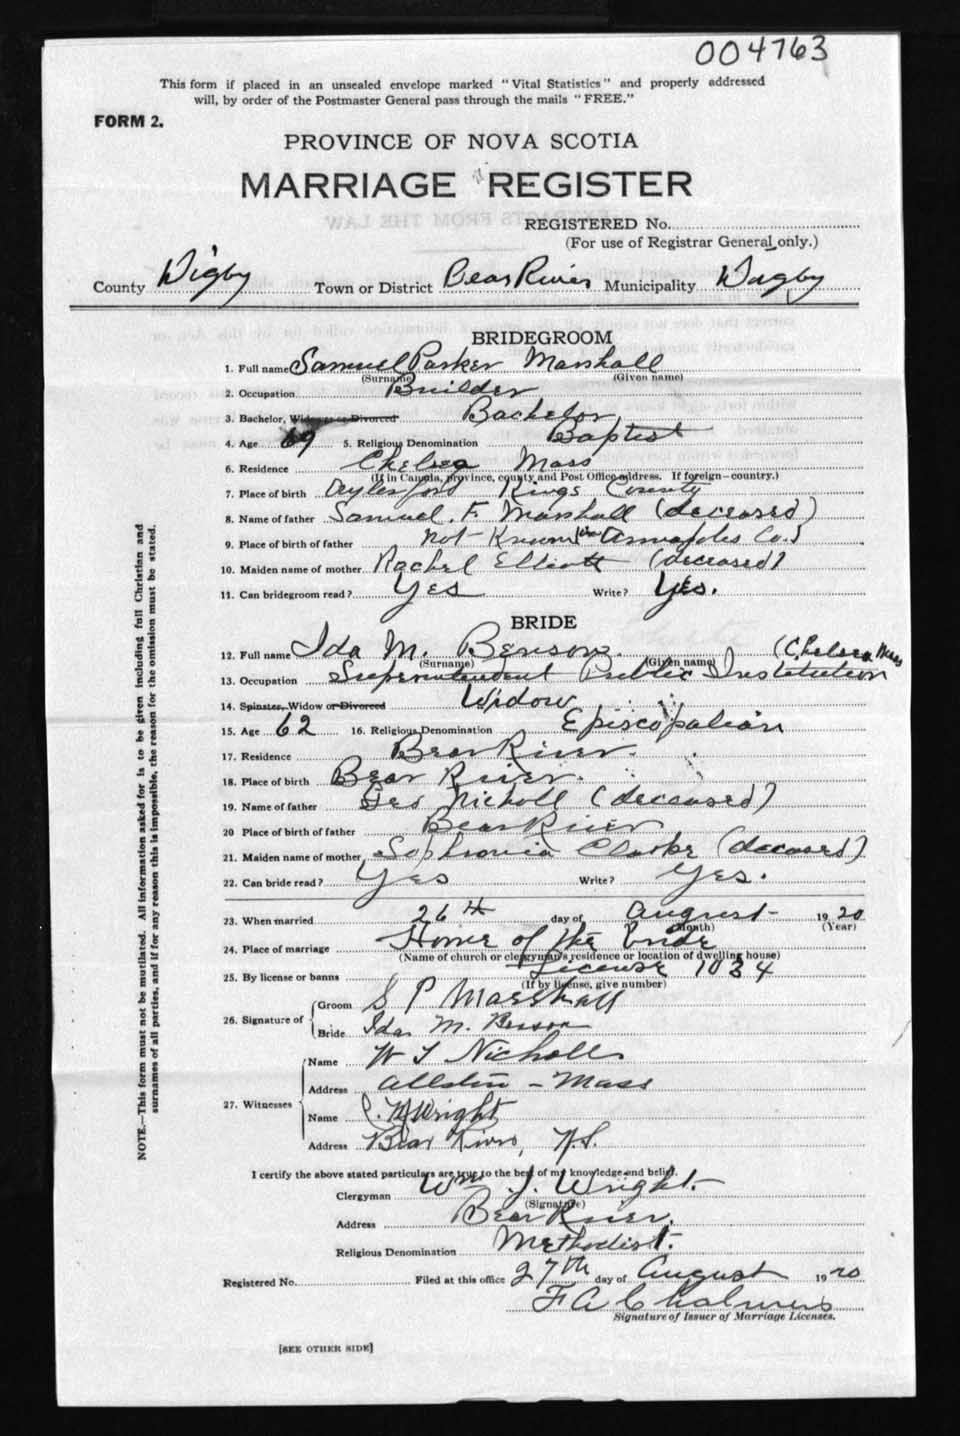 004763
This form if placed in an unsealed envelope marked "Vital Statistics" and properly addressed
will, by order of the Postmaster General pass through the mails "FREE."
FORM 2.
PROVINCE OF NOVA SCOTIA
MARRIAGE REGISTER
REGISTERED No.
(For use of Registrar General only.)
County Digby Town or District Bear River Municipality Digby
BRIDEGROOM
1. Full name Samuel Parker Marshall
(Surname) (Given name)
2. Occupation Builder
3. Bachelor, Widower or Divorced Bachelor
4. Age 69 5. Religious Denomination Baptist
6. Residence Chelsea Mass
(If in Canada, province, county and Post Office address. If foreign—country.)
7. Place of birth Aylesford Kings County
8. Name of father Samuel F. Marshall (deceased)
9. Place of birth of father not Known Annapolis Co.)
10. Maiden name of mother Rachel Elliott (deceased)
11. Can bridegroom read? Yes Write? Yes.
BRIDE
12. Full name Ida M. Benson. (Chelsea Mass
(Surname) (Given name)
13. Occupation Superintendent Public Institution
14. Spinster, Widow or Divorced Widow
15. Age 62 16. Religious Denomination Episcopalian
17. Residence Bear River.
18. Place of birth Bear River.
19. Name of father Geo Nicholl (deceased)
20 Place of birth of father Bear River
21. Maiden name of mother Sophronia Clarke (deceased)
22. Can bride read? Yes Write? Yes.
23. When married 26th day of August 1920
(Month) (Year)
24. Place of marriage Home of the Bride
(Name of church or clergyman's residence or location of dwelling house)
25. By license or banns License 1034
(If by license, give number)
26. Signature of Groom S P Marshall
Bride Ida M. Benson
27. Witnesses Name W Nicholls
Address Allston - Mass
Name Wright
Address Bear River, N.S.
I certify the above stated particulars are true to the best of my knowledge and belief.
Clergyman Wm J. Wright.
(Signature)
Address Bear River.
Religious Denomination Methodist.
Registered No. Filed at this office 27th day of August 1920
F A Chalmers
Signature of Issuer of Marriage Licenses.
[SEE OTHER SIDE]
NOTE.—This form must not be mutilated. All information asked for is to be given including full Christian and
surnames of all parties, and if for any reason this is impossible, the reason for the omission must be stated.